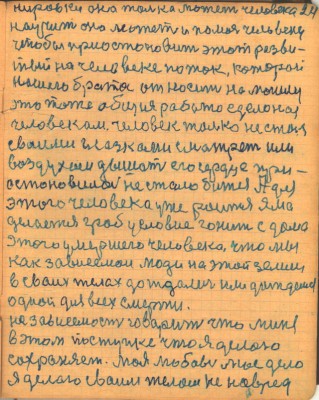 нировки она только может человека 24
научит она может и помоч человеку
чтобы приостоновит этот разви-
тый на человеке поток, которой
нашего брата относит на мошину
это тоже общия работа сделоная
человекам. человек толко не стал
своими глазками смотрет или
воздухом дышат его сердце при-
остоновилос не стало битса А для
этого человека уже роится яма
делается гроб условие гонит с дома
этого умершего человека, что мы
как зависемои люди на этой земли
в своих телах дождалис или дождемся
одной для всех смерти.
независемост говорит что миня
в этом поступке что я делаю
сохроняет. Моя любовь мое дело
я делаю своим телом не навред